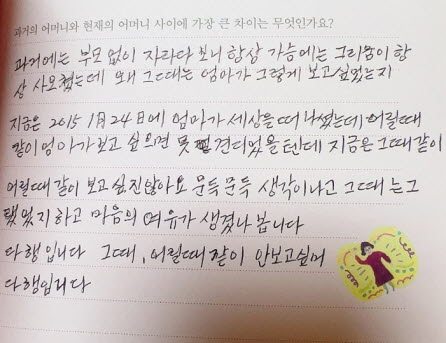 과거의 어머니와 현재의 어머니 사이에 가장 큰 차이는 무엇인가요?
과거에는 부모 없이 자라다 보니 항상 가슴에는 그리움이 항
상 사모쳤는데 왜 그때는 엄마가 그렇게 보고싶었는지
지금은 2015 1月 24日에 엄마가 세상을 떠나셨는데 어릴때
같이 엄마가 보고 싶으면 못 견디었을텐데 지금은 그때같이
어릴때 같이 보고 싶진않아요 문득문득 생각이나고 그때는 그
랬었지 하고 마음의 여유가 생겼나 봅니다
다행입니다 그때, 어릴때 같이 안보고싶어
다행입니다